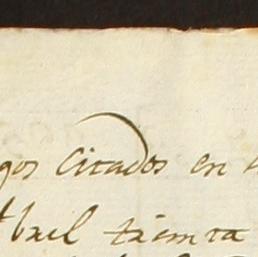 gos citados en
Abril treinta